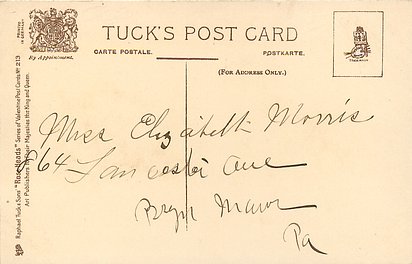 TUCK'S POST CARD
CARTE POSTALE. POSTKARTE.
By Appointment.
(FOR ADDRESS ONLY.)
Raphael Tuck & Sons' "Rose Heads" Series of Valentine Post Cards No 213
Art Publishers to Their Majesties the King and Queen.
Miss Elizabeth Morris
864 Lancaster Ave
Bryn Mawr
Pa